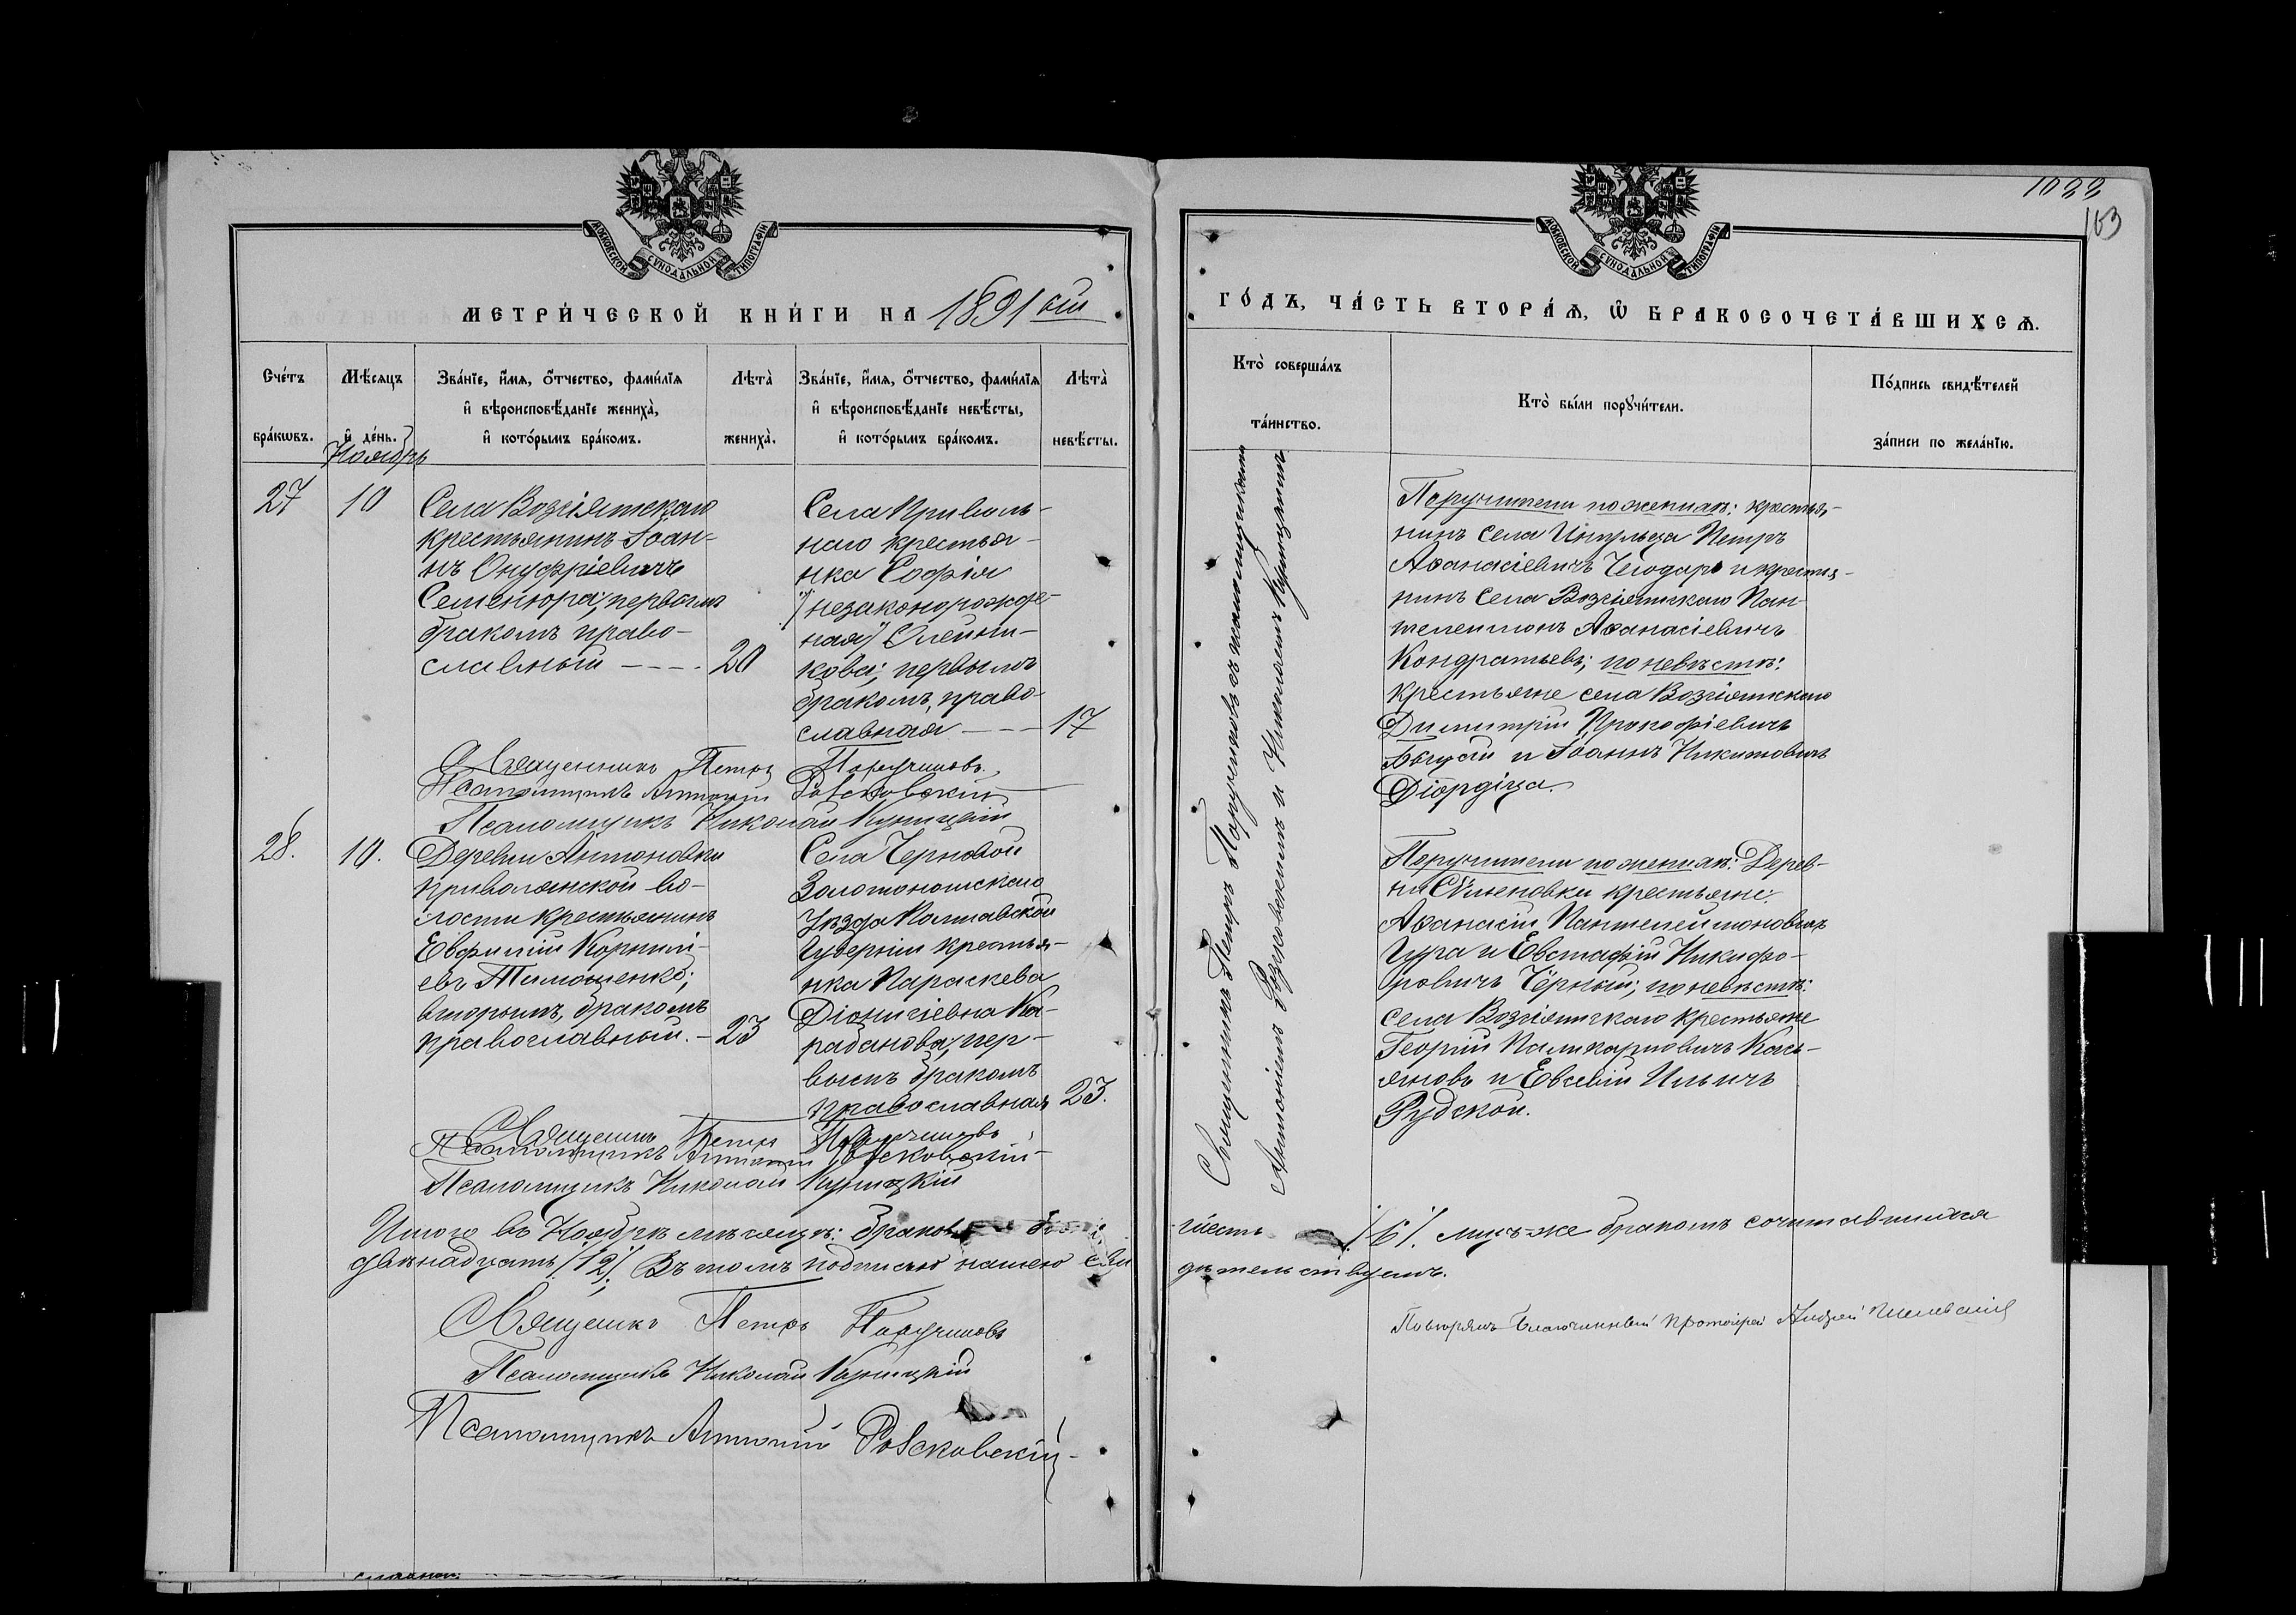 МОСКОВСКОЙ СѴНОДАЛЬНОЙ ТИПОГРАФІИ
МЕТРИ́ЧЕСКОЙ КНИ́ГИ НА 1891 ый
Сче́тъ бра́кѡвъ.
Мѣ́сяцъ и҆ де́нь.
Зва́нїе, и҆́мѧ, ѻ҆́тчество, фами́лїѧ
и҆ вѣроисповѣ́данїе жениха̀,
и҆ кото́рымъ бра́комъ.
Лѣта̀ жениха̀.
Зва́нїе, и҆́мѧ, ѻ҆́тчество, фами́лїѧ
и҆ вѣроисповѣ́данїе невѣ́сты,
и҆ кото́рымъ бра́комъ.
Лѣта̀ невѣ́сты.
Ноябрь
27
10
Села Возсіятскаго
крестьянинъ Іоан-
нъ Онуфріевичъ
Семенюра; первымъ
бракомъ, право-
славный ---- 20
Села Приволь-
наго крестья-
нка Софія
/незаконорожде-
ная/ Олейни-
кова; первымъ
бракомъ, право-
славная --- 17
Священникъ Петръ Поручиновъ
Псаломщикъ Антоній
Псаломщикъ Николай Куницкій
28.
10.
Деревни Антоновки
Приволянской во-
лости крестьянинъ
Евфимій Корнилі-
евъ Тимошенко;
вторымъ, бракомъ
православный. - 23
Села Черновой
Золотоношскаго
Уѣзда Полтавской
Губерніи крестья-
нка Параскева
Діонисіевна Ка-
рабанова; пер-
вымъ бракомъ
православная 23.
Священникъ Петръ Поручиновъ
Псаломщикъ Антоній
Псаломщикъ Николай Куницкій
Итого въ Ноябрѣ мѣсяцѣ: браковъ
двѣнадцать /12/. Въ томъ подписью нашею сви
Священникъ Петръ Поручиновъ
Псаломщикъ Николай Куницкій
Псаломщикъ Антоній
1022
163
МОСКОВСКОЙ СѴНОДАЛЬНОЙ ТИПОГРАФІИ
ГО́ДЪ, ЧА́СТЬ ВТОРА́Ѧ, Ѽ БРАКОСОЧЕТА́ВШИХСѦ.
Кто̀ соверша́лъ та́инство.
Кто̀ бы́ли порꙋчи́тели.
По́дпись свидѣ́телей
за́писи по жела́нїю.
Священникъ Петръ Поручиновъ съ псаломщиками
Антоніемъ и Николаемъ Куницкимъ
Поручители по женихѣ: крестья-
нинъ села Ингульца Петръ
Аѳанасіевичъ и крестья-
нинъ села Возсіятскаго Пан-
телеимонъ Аѳанасіевичъ
Кондратьевъ; по невѣстѣ:
крестьяне села Возсіятскаго
Димитрій Прокофіевичъ
и Іоаннъ Никитовичъ
Діордіца.
Поручители по женихѣ: Дерев-
ни Семеновки крестьяне:
Аѳанасій Пантелеимоновичъ
Гура и Евстафій Никифо-
ровичъ Чёрный; по невѣстѣ:
села Возсіятскаго крестьяне
Георгій Поликарповичъ Кась-
яновъ и Евсевій Ильичъ
Рудской.
шесть /6/. мужъ-же бракомъ сочитавшихся
дѣтельствуемъ.
Повѣрялъ Благочинный Протоіерей Андрей